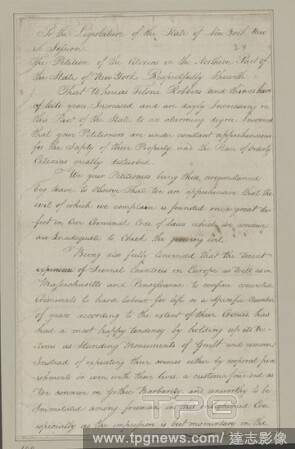 To the Legislature of the State of New York Now
in Session
24
The Petition of the Citizens in the Northern Part of
the State of New York Respectfully Sheweth
That Whereas Felons Robbers and Thieves have
of late years Increased and are dayly Increasing in
this Part of the State to an alarming degree Insomuch
that your Petitioners are under constant apprehensions
for the Safety of their Property and the Peace of Orderly
Citizens greatly disturbed
We your Petitioners being thus circumstanced
beg leave to Shew That the apprehension that the
evil of which we complain is founded on a great de=
fect in our Criminal Code of Laws which we conceive
are Inadequate to Check the growing evil
Being also fully Convinced that the late
experience of Several Countries in Europe as well as in
Massachusetts and Pensylvania to confine convicted
Criminals to hard Labour for life or a Specific Number
of years according to the extent of their Crimes has
had a most happy tendency by holding up its Vic=
tims as Standing Monuments of Guilt and
Instead of expiating their crimes either by corporal pun=
ishments or even with their lives a custom
on Gothic Barbarity and unworthy to be
Immitated among
especially as the impression is but momentary in the
TPG
www.tpgnews.com / 達志影像